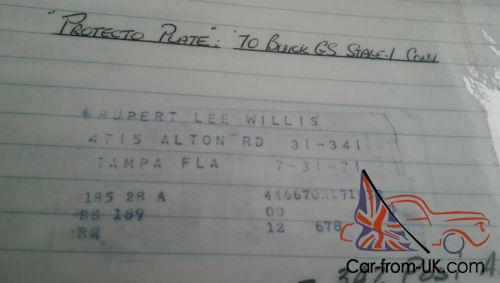 "PROTECTO PLATE": '70 BUICK GS STAGE-1 CONV
RUPERT LEE WILLIS
4715 ALTON RD 31-341
TAMPA FLA 7-31-71
185 28 A 446670H191
SS 189 00
RH 12 678
342 POST-A
Car-from-UK.com